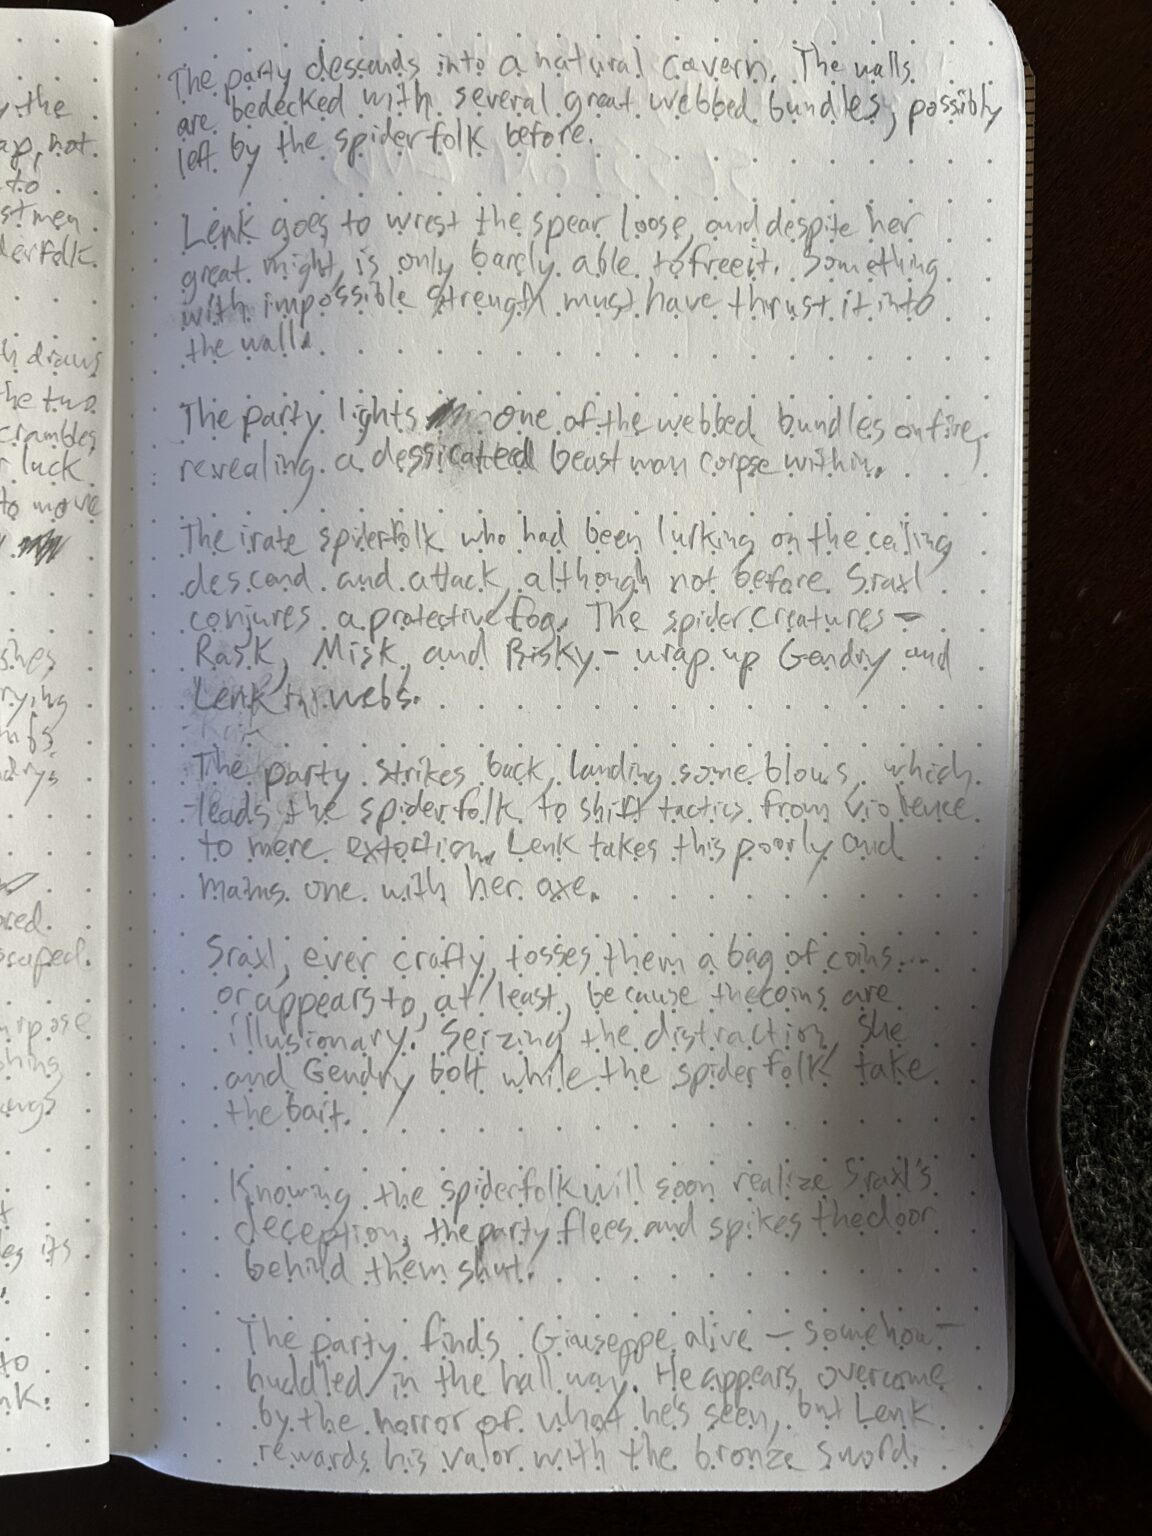 y the
ap, not
to
stmen
derfolk.
h draws
the two
crambles
r luck
to move
shes
rying
red.
scaped.
urpose
hing
ungs
es its
to
nk.
The party descends into a natural cavern. The walls
are bedecked with several great webbed bundles, possibly
left by the spiderfolk before.
Lenk goes to wrest the spear loose, and despite her
great might, is only barely able to free it. Something
with impossible strength must have thrust it into
the wall.
The party lights one of the webbed bundles on fire,
revealing a dessicated beastman corpse within.
The irate spiderfolk who had been lurking on the ceiling
descend and attack, although not before Sraxl
conjures a protective fog. The spider creatures –
Rask, Misk, and Bisky – wrap up Gendry and
Lenk in webs.
The party strikes back, landing some blows, which
leads the spiderfolk to shift tactics from violence
to mere extortion. Lenk takes this poorly and
maims one with her axe.
Sraxl, ever crafty, tosses them a bag of coins...
or appears to, at least, because the coins are
illusionary. Seizing the distraction, she
and Gendry bolt while the spiderfolk take
the bait.
Knowing the spiderfolk will soon realize Sraxl's
deception, the party flees and spikes the door
behind them shut.
The party finds Giauseppe alive – somehow –
huddled in the hallway. He appears overcome
by the horror of what he's seen, but Lenk
rewards his valor with the bronze sword.